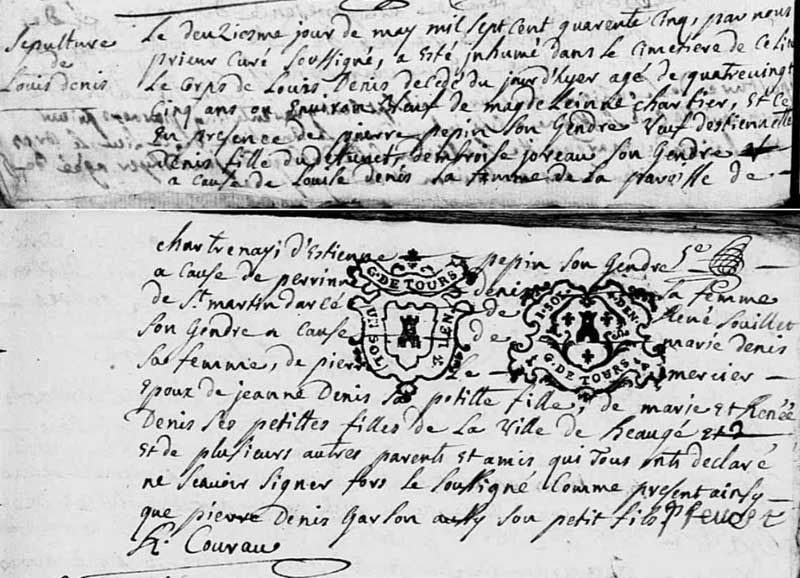 Sepulture
de
Louis denis
Le deuziesme jour de may mil sept cent quarente cinq, par nous
prieur curé soussigné, a esté inhumé dans le cimetiere de Ce lieu
Le Corps de Louis Denis decedé du jour d'hyer agé de quatrevingt
Cinq ans ou Environ Veuf de magdeleinne chartier, Et Ce
En presence de pierre pepin son Gendre Veuf destiennette
Denis fille du defunct, dambroise joreau son Gendre
a cause de Louise denis sa femme de la paroisse de -
chartrenay, d'Estienne pepin son Gendre
a cause de perrinne denis sa femme
de St martin darcé de René Souillet
son Gendre a cause de marie denis
sa femme, de pierre Le mercier -
Epoux de jeanne Denis sa petitte fille, de marie Et Renée
Denis ses petittes filles de La Ville de beaugé Et
Et de plusieurs autres parents Et amis qui Tous onts declaré
ne scavoir signer fors Le soussigné Comme present ainsy
que pierre Denis Garson son petit fils
Courau
G. DE TOURS
UN SOL
G. DE TOURS